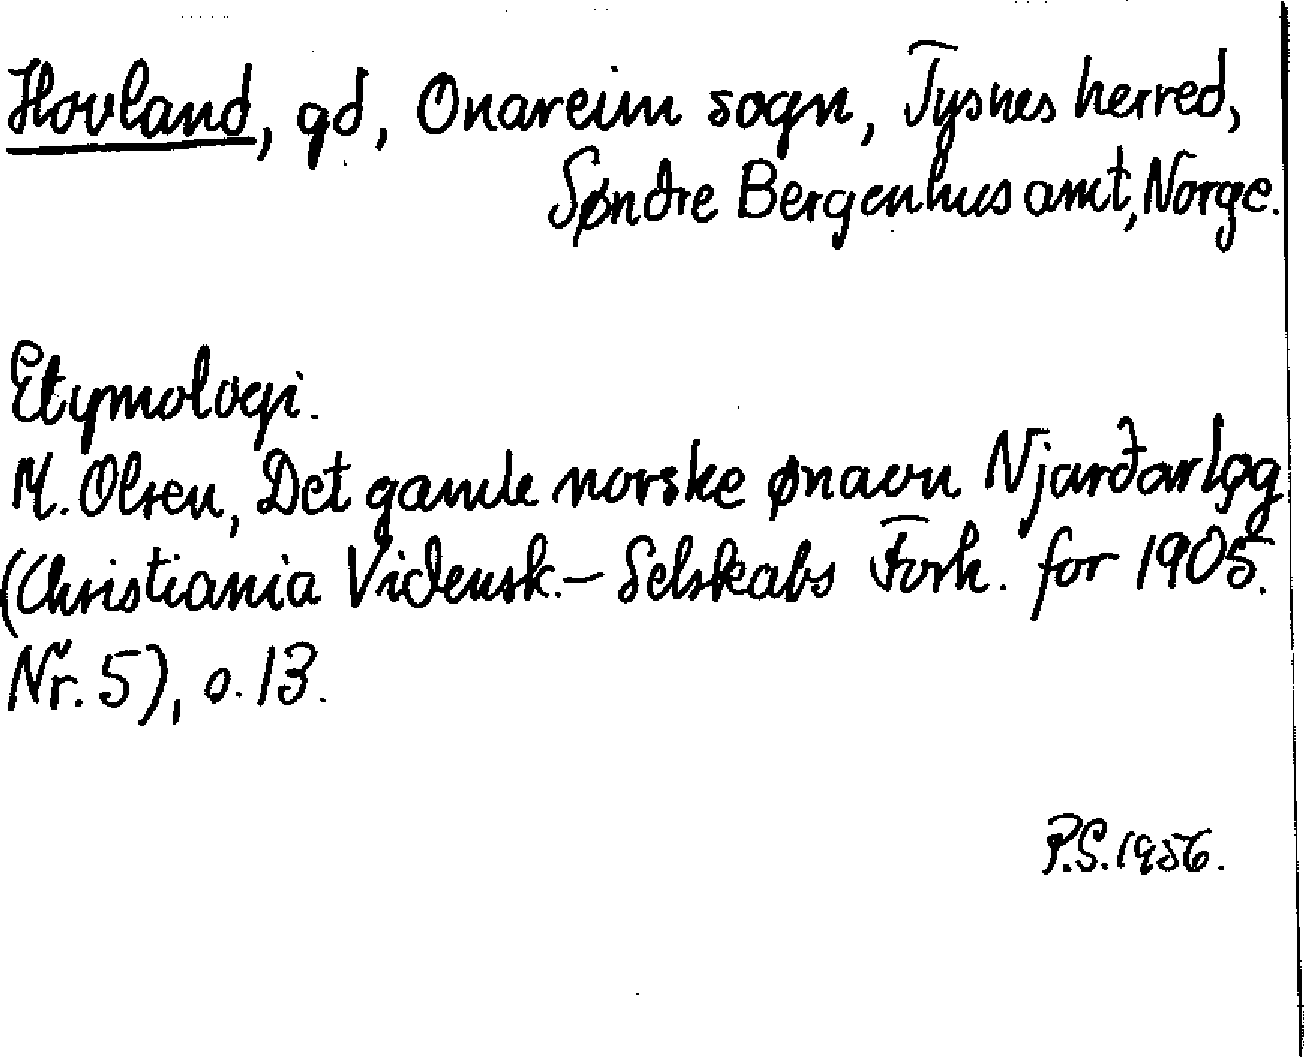 Hovland, gd, Onareim sogn, Tysnes herred,
Søndre Bergenhus amt, Norge.
Etymologi.
M. Olsen, Det gamle norske ønavn Njarðarlǫg
(Christiania Vidensk.-Selskabs Forh. for 1905.
Nr. 5), s. 13.
P.S. 1956.